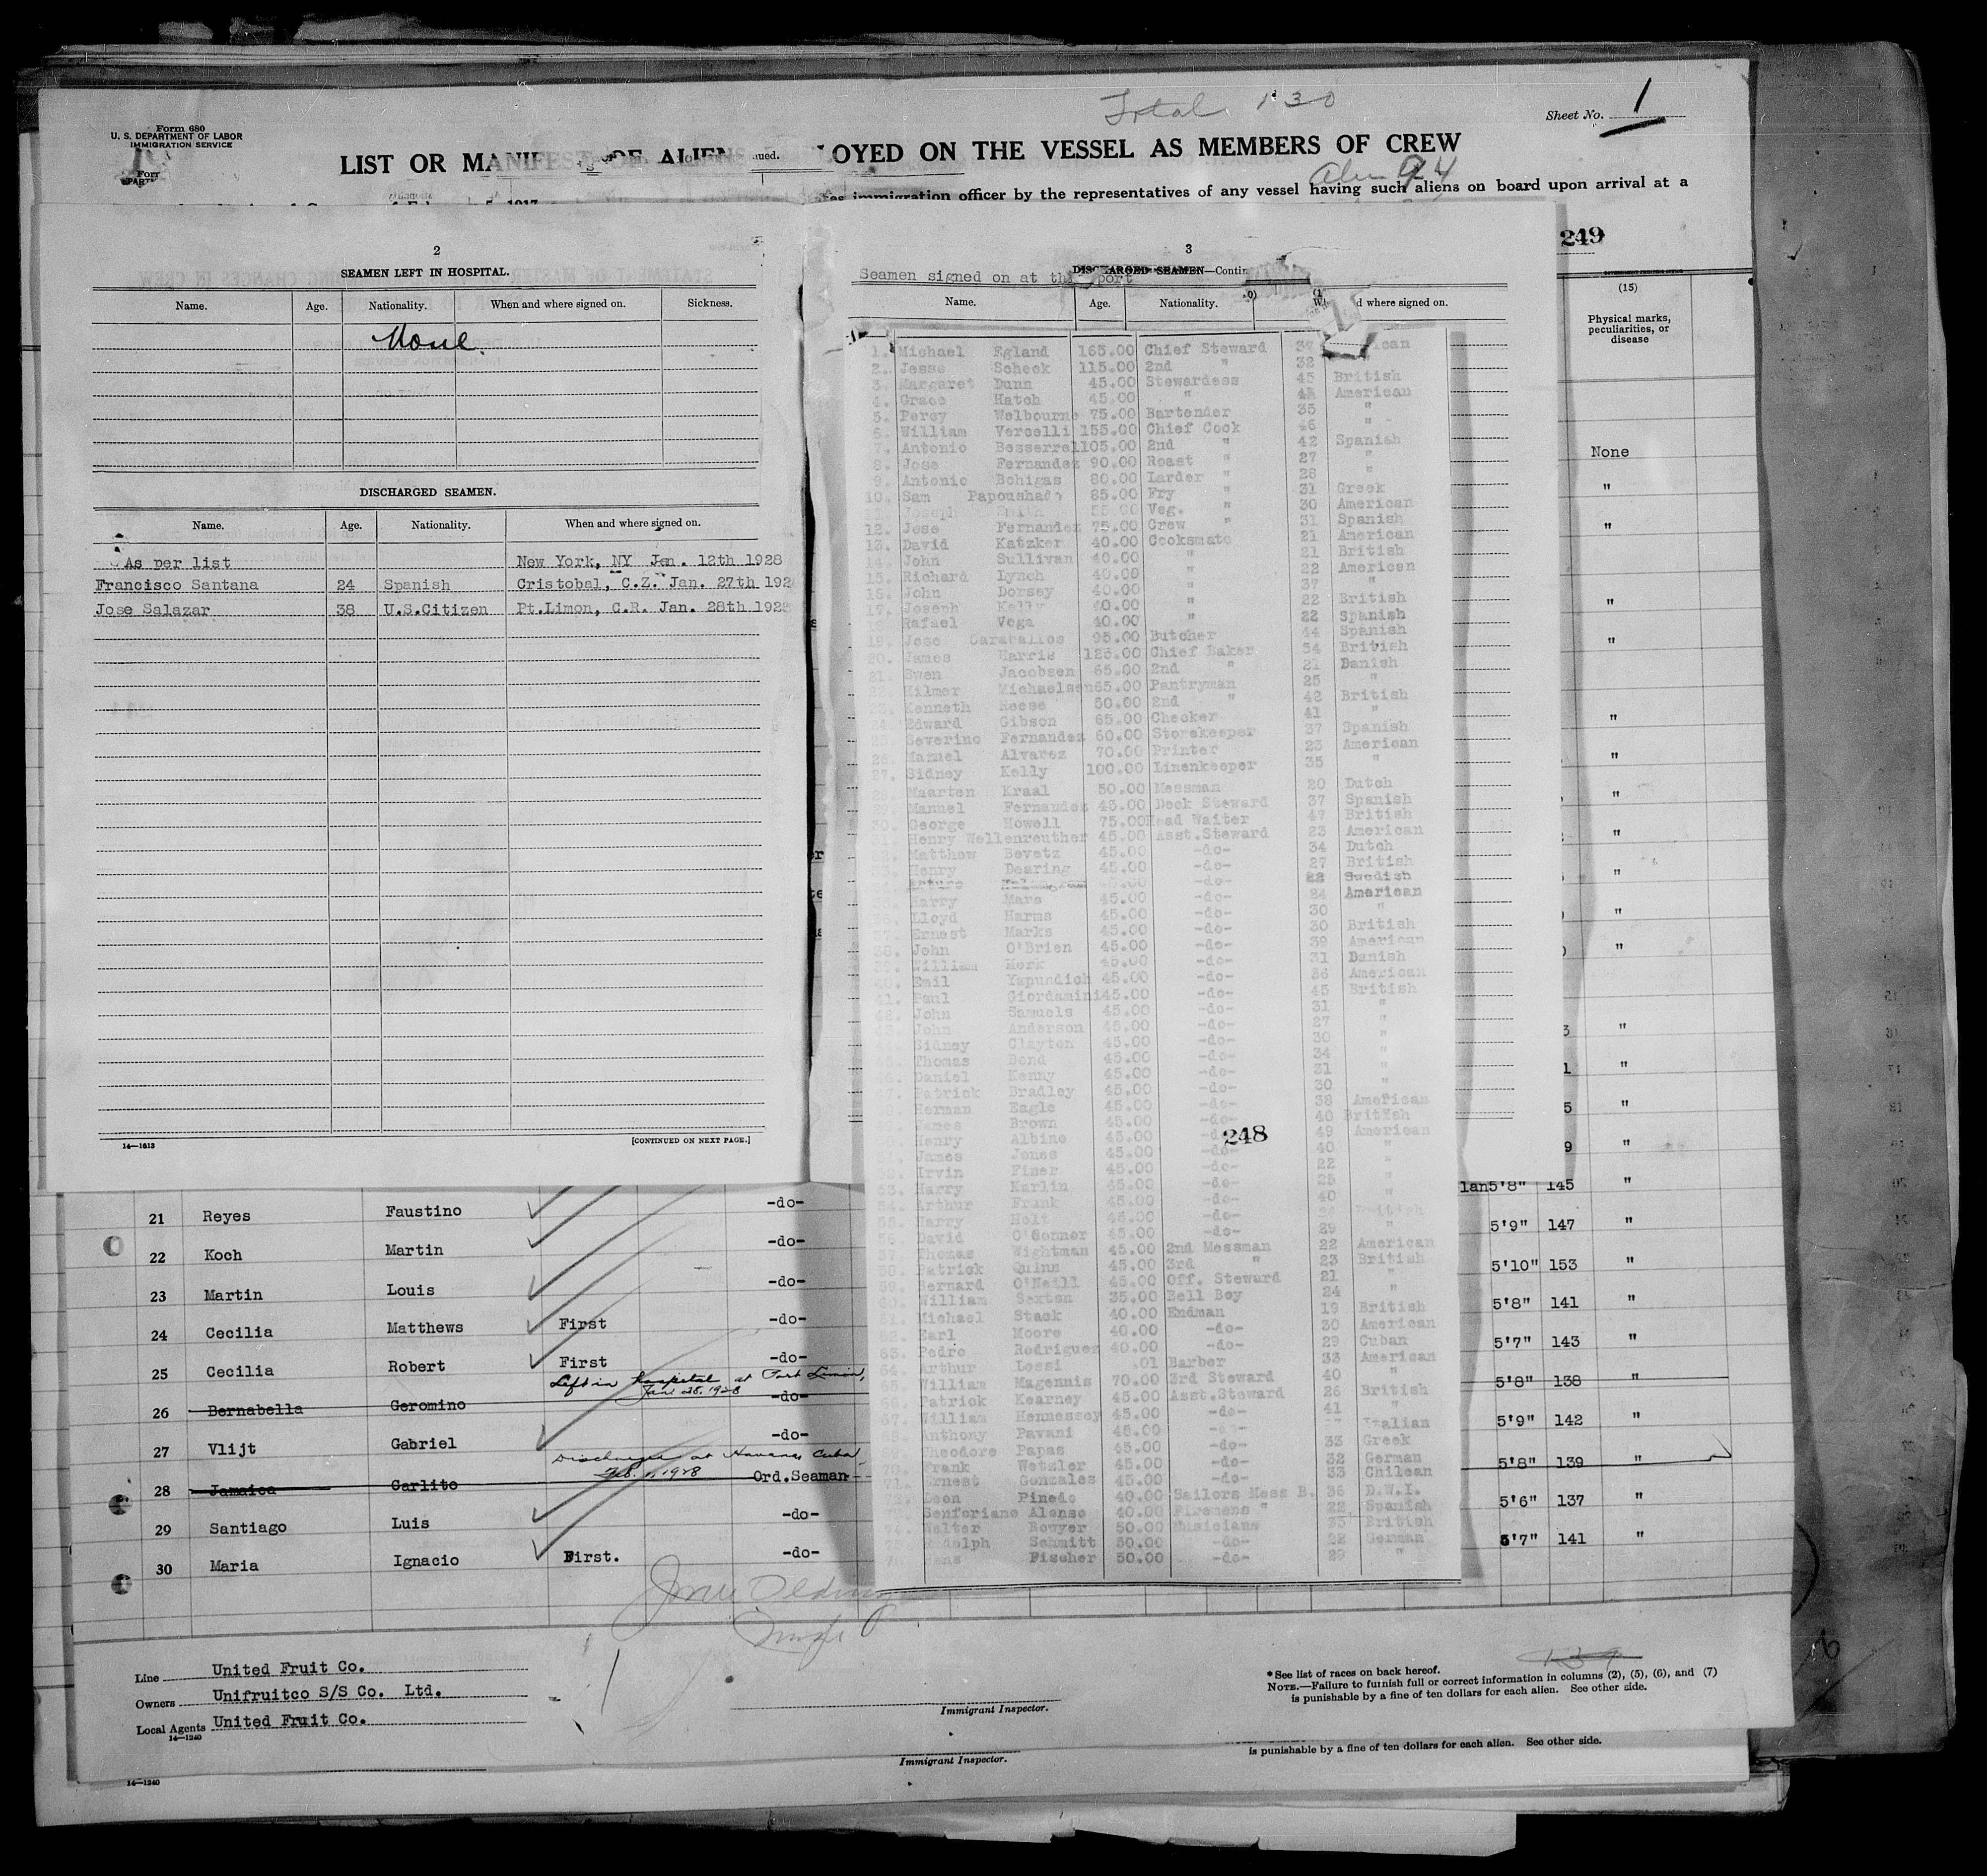 Total 130
Sheet No. 1
Form 680
U. S. DEPARTMENT OF LABOR
IMMIGRATION SERVICE
LIST OR MANIFEST OF ALIENS OYED ON THE VESSEL AS MEMBERS OF CREW
94
immigration officer by the representatives of any vessel having such aliens on board upon arrival at a
249
2
SEAMEN LEFT IN HOSPITAL.
Name. Age. Nationality. When and where signed on. Sickness.
None.
DISCHARGED SEAMEN.
Name. Age. Nationality. When and where signed on.
As per list New York, NY Jan. 12th 1928
Francisco Santana 24 Spanish Cristobal, C.Z. Jan. 27th 192
Jose Salazar 38 U.S.Citizen Pt.Limon, C.R. Jan. 28th 1928
14—1613 [CONTINUED ON NEXT PAGE.]
3
DISCHARGED SEAMEN—Contin
Seamen signed on at this port
Name. Age. Nationality. d where signed on.
1. Michael Egland 165.00 Chief Steward 37 ican
2. Jesse Scheck 115.00 2nd " 32
3. Margaret Dunn 45.00 Stewardess 45 British
4. Grace Hatch 45.00 " American
5. Percy Welbourne 75.00 Bartender 35 "
6. William Vercelli 155.00 Chief Cook 46 "
7. Antonio Besserrel 105.00 2nd " 42 Spanish
8. Jose Fernandez 90.00 Roast " 27 "
9. Antonio Bohigas 80.00 Larder " 28 "
10. Sam Papoushado 85.00 Fry " 31 Greek
Joseph Smith 55.00 Veg. " 30 American
12. Jose Fernandez 75.00 Crew " 31 Spanish
13. David Katzker 40.00 Cooksmate 21 American
14. John Sullivan 40.00 " 21 British
15. Richard Lynch 40.00 " 22 American
16. John Dorsey 40.00 " 37 "
17. Joseph Kelly 40.00 " 22 British
18. Rafael Vega 40.00 " 22 Spanish
19. Jose Caraballos 95.00 Butcher 44 Spanish
20. James Harris 125.00 Chief Baker 54 British
21. Swen Jacobsen 65.00 2nd " 21 Danish
Hilmer Michaelsen 65.00 Pantryman 25 "
23. Kenneth Reese 50.00 2nd " 42 British
24. Edward Gibson 65.00 Checker 41 "
25. Severino Fernandez 60.00 Storekeeper 37 Spanish
26. Manuel Alvarez 70.00 Printer 23 American
27. Sidney Kelly 100.00 Linenkeeper 35 "
28. Maarten Kraal 50.00 Messman 20 Dutch
29. Manuel Fernandez 45.00 Deck Steward 37 Spanish
30. George Howell 75.00 Head Waiter 47 British
31. Henry Wellenreuther 45.00 Asst.Steward 23 American
32. Matthew Bevetz 45.00 -do- 34 Dutch
33. Henry Dearing 45.00 -do- 27 British
-do- 22 Swedish
Harry Mars 45.00 -do- 24 American
36. Lloyd Harms 45.00 -do- 30 "
37. Ernest Marks 45.00 -do- 30 British
38. John O'Brien 45.00 -do- 39 American
39. William Herk 45.00 -do- 31 Danish
40. Emil Yapundich 45.00 -do- 36 American
41. Paul Giordamini 45.00 -do- 45 British
42. John Samuels 45.00 -do- 31 "
43. John Anderson 45.00 -do- 27 "
44. Sidney Clayton 45.00 -do- 30 "
45. Thomas Bond 45.00 -do- 34 "
46. Daniel Kenny 45.00 -do- 31 "
47. Patrick Bradley 45.00 -do- 30 "
48. Herman Eagle 45.00 -do- 38 American
James Brown 45.00 -do- 40 British
Henry Albino 45.00 -do- 49 American
248
51. James Jones 45.00 -do- 40 "
52. Irvin Finer 45.00 -do- 22 "
53. Harry Karlin 45.00 -do- 25 "
54. Arthur Frank 45.00 -do- 40 "
55. Harry Holt 45.00 -do- British
56. David O'Connor 45.00 -do- 29 "
57. Thomas Wightman 45.00 2nd Messman 22 American
58. Patrick Quinn 45.00 3rd " 23 British
59. Bernard O'Neill 45.00 Off. Steward 21 "
60. William Sexton 35.00 Bell Boy 24 "
61. Michael Stack 40.00 Endman 19 British
Earl Moore 40.00 -do- 30 American
63. Pedro Rodriguez 40.00 -do- 29 Cuban
64. Arthur Lossi .01 Barber 33 American
65. William Magennis 70.00 3rd Steward 40 "
66. Patrick Kearney 45.00 Asst.Steward 26 British
67. William Hennessey 45.00 -do- 41 "
68. Anthony Pavani 45.00 -do- Italian
69. Theodore Papas 45.00 -do- 33 Greek
70. Frank Wetzler 45.00 -do- 32 German
71. Ernest Gonzales 45.00 -do- 33 Chilean
72. Leon Pinedo 40.00 Sailors Mess B. 36 D.W.I.
Senforiano Alonso 40.00 Firemens " 22 Spanish
Walter Bowyer 50.00 Musicians 35 British
Rudolph Schmitt 50.00 -do- 22 German
Hans Fischer 50.00 -do- 29 "
(15)
Physical marks, peculiarities, or disease
None
21 Reyes Faustino -do- lan 5'8" 145 "
22 Koch Martin -do- 5'9" 147 "
23 Martin Louis -do- 5'10" 153 "
24 Cecilia Matthews First -do- 5'8" 141 "
25 Cecilia Robert First -do- 5'7" 143 "
Left in hospital at Port Limon, Jan 28, 1928
26 Bernabella Geromino -do- 5'8" 138 "
27 Vlijt Gabriel -do- 5'9" 142 "
Discharged at Havana Cuba, Feb. 1, 1928
28 Jamaica Carlito Ord.Seaman 5'8" 139 "
29 Santiago Luis -do- 5'6" 137 "
30 Maria Ignacio First. -do- 5'7" 141 "
Line United Fruit Co.
Owners Unifruitco S/S Co. Ltd.
Local Agents United Fruit Co.
14—1240
Immigrant Inspector.
*See list of races on back hereof.
NOTE.—Failure to furnish full or correct information in columns (2), (5), (6), and (7)
is punishable by a fine of ten dollars for each alien. See other side.
Immigrant Inspector.
is punishable by a fine of ten dollars for each alien. See other side.
14—1240